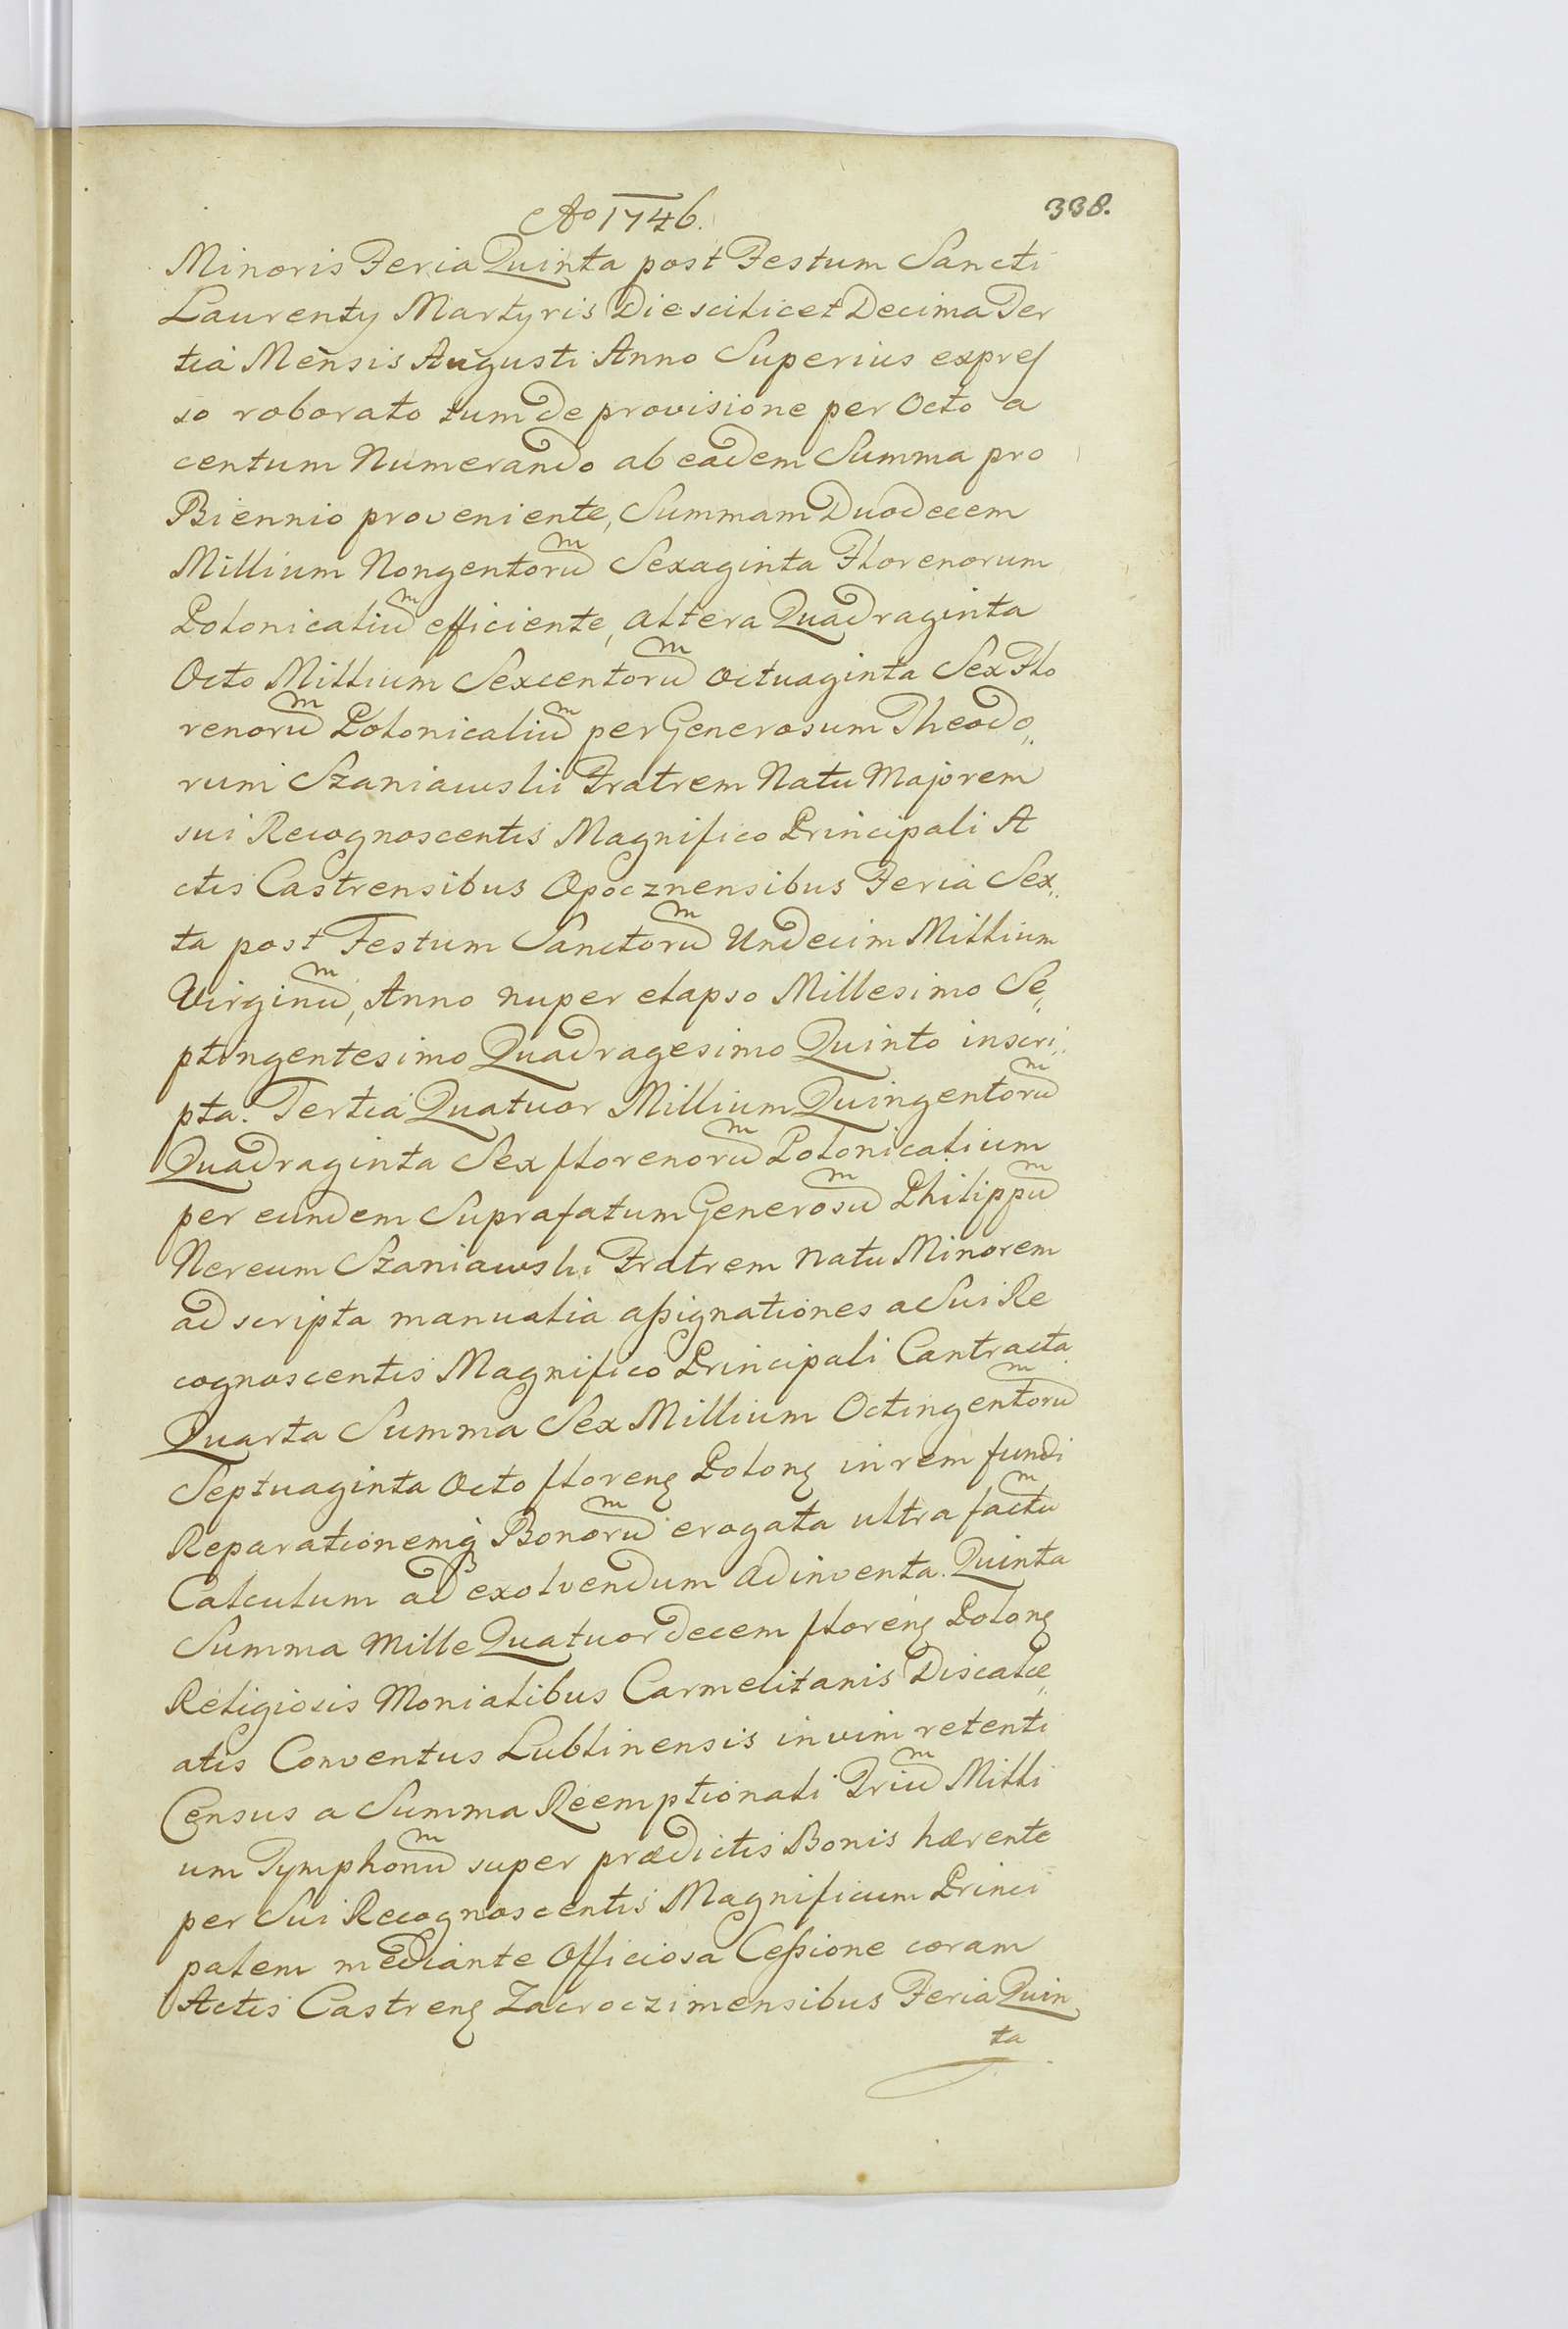 Ao 1746.
338.
Minoris Feria Quinta post Festum Sancti
Laurenty Martyris Die scilicet Decima Ter
tia Mensis Augusti Anno Superius expres
so roborato tum de provisione per Octo a
centum Numerando ab eadem Summa pro
Biennio proveniente, Summam Duodecem
Millium Nongentorum Sexaginta Florenorum
Polonicalium efficiente, altera Quadraginta
Octo Millium Sexcentorum Octuaginta Sex Flo
renorum Polonicalium per Generosum Theodo„
rum Szaniawski Fratrem Natu Majorem
sui Recognoscentis Magnifico Principali A
ctis Castrensibus Opocznensibus Feria Sex„
ta post Festum Sanctorum Undecim Millium
Virginum, Anno nuper elapso Millesimo Se„
ptingentesimo Quadragesimo Quinto inscri„
pta. Tertia Quatuor Millium Quingentorum
Quadraginta Sex florenorum Polonicalium
per eundem Suprafatum Generosum Philippum
Nereum Szaniawski Fratrem natu Minorem
ad scripta manualia aßignationes a Sui Re
cognoscentis Magnifico Principali Contracta
Quarta Summa Sex Millium Octingentorum
Septuaginta Octo florenȩ Polonȩ in rem fundi
Reparationemq̃ Bonorum erogata ultra factum
Calculum ad exolvendum adinventa. Quinta
Summa Mille Quatuordecem florenȩ Polonȩ
Religiosis Monialibus Carmelitanis Discalce„
atis Conventus Lublinensis in vim retenti
Census a Summa Reemptionali Trium Milli
um Tymphonum super prædictis Bonis hærente
per Sui Recognoscentis Magnificum Princi
palem mediante Officiosa Ceßione coram
Actis Castrenȩ Zacroczimensibus Feria Quin
ta